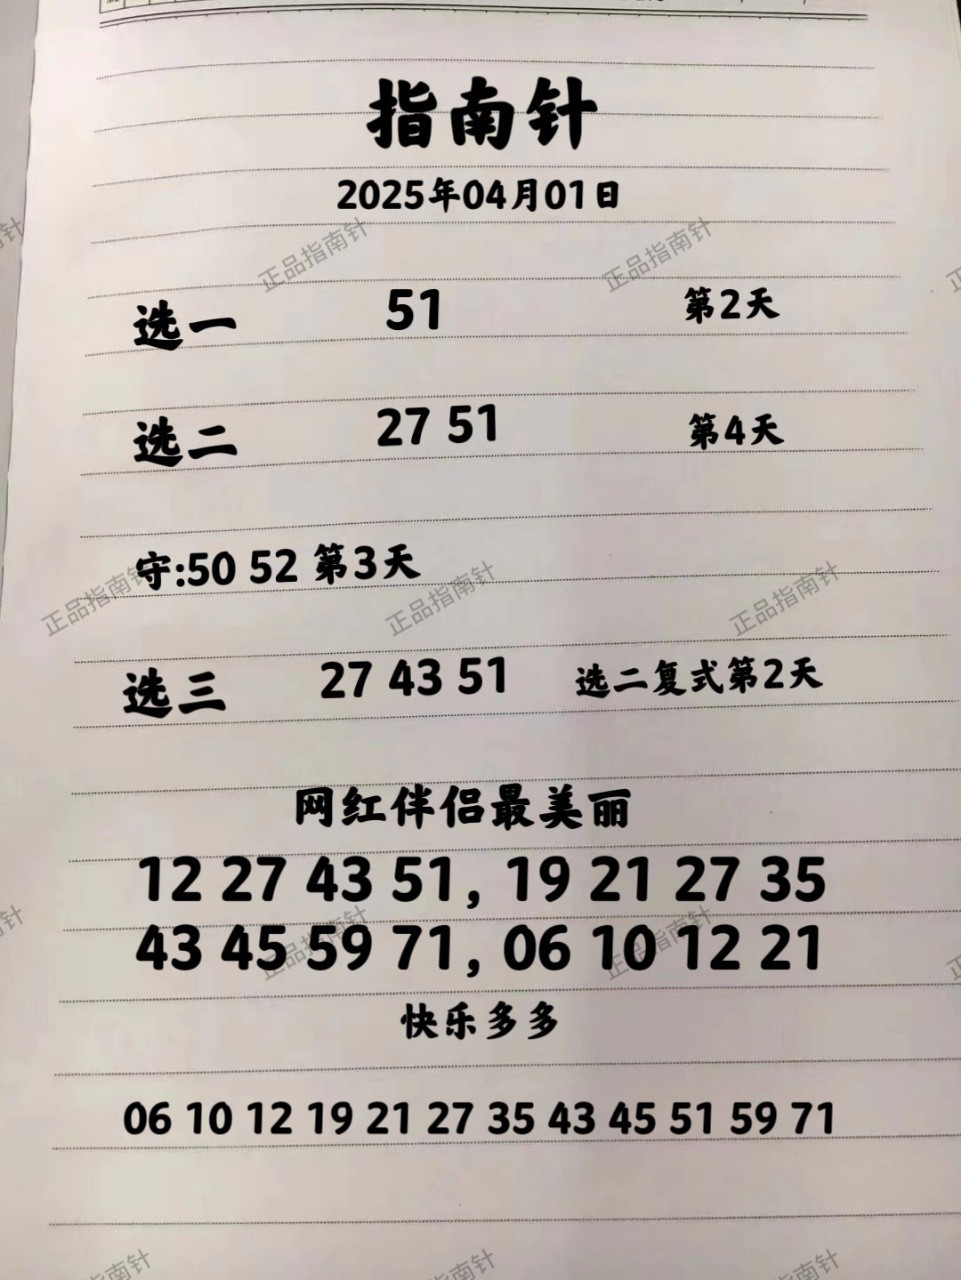 指南针
2025年04月01日
选一 51 第2天
选二 27 51 第4天
守:50 52 第3天
选三 27 43 51 选二复式第2天
网红伴侣最美丽
12 27 43 51, 19 21 27 35
43 45 59 71, 06 10 12 21
快乐多多
06 10 12 19 21 27 35 43 45 51 59 71
正品指南针
正品指南针
正品指南针
正品指南针
正品指南针
正品指南针
正品指南针